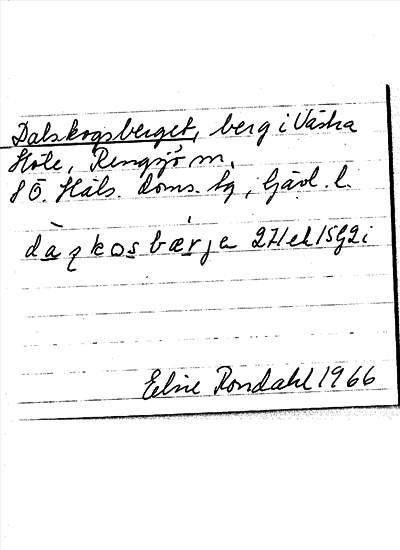 Dalskogsberget, berg i Västra
Höle, Rengsjö sn,
SÖ. Häls. doms. tg, Gävl. l.
dàɀkosbær̀ja 271 el 15G2i
Elsie Rondahl 1966